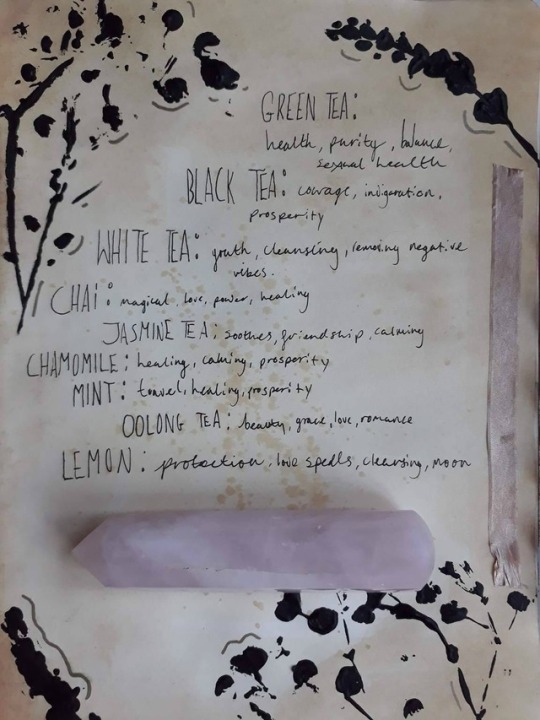 GREEN TEA:
health, purity, balance,
sexual health
BLACK TEA: courage, invigoration,
prosperity
WHITE TEA: youth, cleansing, removing negative
vibes.
CHAI: magical, love, power, healing
JASMINE TEA: soothes, friendship, calming
CHAMOMILE: healing, calming, prosperity
MINT: travel, healing, prosperity
OOLONG TEA: beauty, grace, love, romance
LEMON: protection, love spells, cleansing, moon